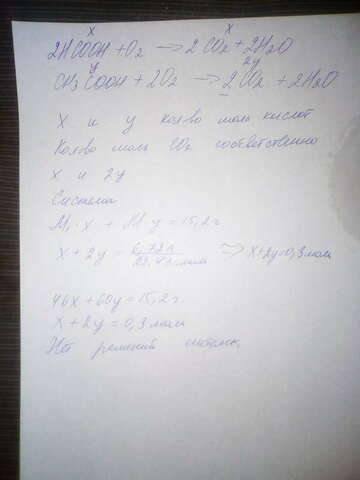 x x
2HCOOH + O2 → 2CO2 + 2H2O
y 2y
CH3COOH + 2O2 → 2CO2 + 2H2O
x и y кол-во моль кислот
Кол-во моль CO2 соответственно
x и 2y
Система
M1·x + M·y = 15,2г
x + 2y = 6,72л / 22,4 л/моль => x+2y=0,3моль
46x + 60y = 15,2г.
x + 2y = 0,3моль
Нет решений